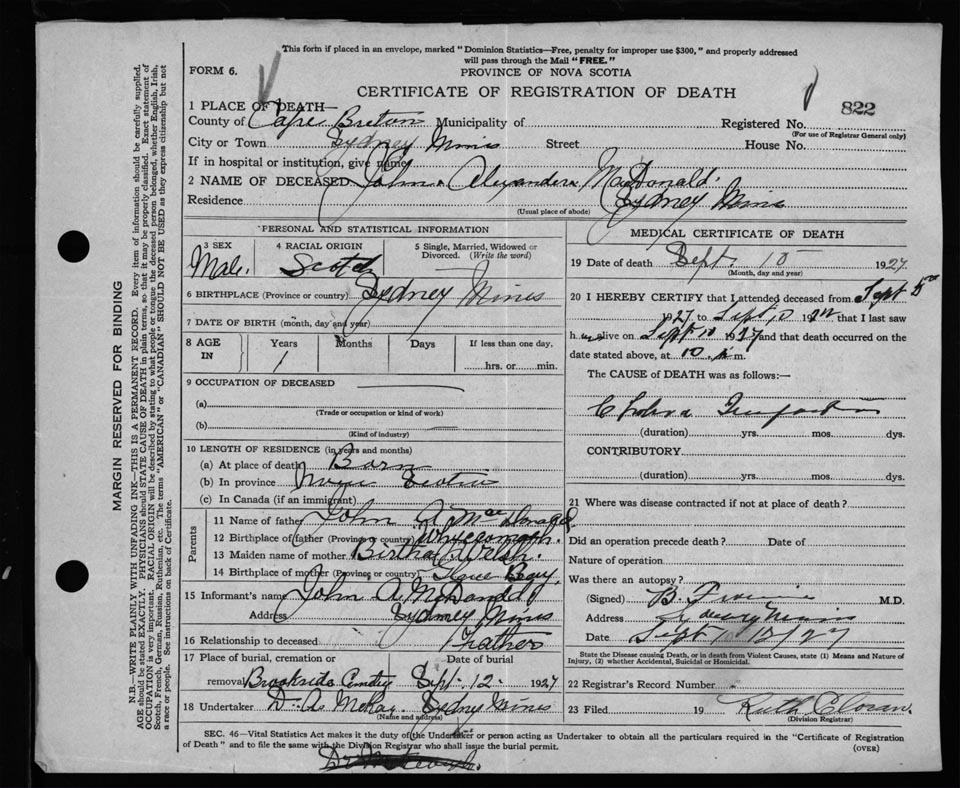 This form if placed in an envelope, marked "Dominion Statistics—Free, penalty for improper use $300," and properly addressed
will pass through the Mail "FREE."
FORM 6.
PROVINCE OF NOVA SCOTIA
CERTIFICATE OF REGISTRATION OF DEATH
822
1 PLACE OF DEATH—
County of Cape Breton Municipality of
Registered No.
(For use of Registrar General only)
City or Town Sydney Mines Street House No.
If in hospital or institution, give name
2 NAME OF DECEASED John Alexander MacDonald.
Residence Sydney Mines
(Usual place of abode)
PERSONAL AND STATISTICAL INFORMATION
3 SEX 4 RACIAL ORIGIN 5 Single, Married, Widowed or Divorced. (Write the word)
Male. Scotch
6 BIRTHPLACE (Province or country) Sydney Mines
7 DATE OF BIRTH (month, day and year)
8 AGE IN Years Months Days If less than one day,
1 hrs. or min.
9 OCCUPATION OF DECEASED
(a)
(Trade or occupation or kind of work)
(b)
(Kind of industry)
10 LENGTH OF RESIDENCE (in years and months)
(a) At place of death Born
(b) In province Nova Scotia
(c) In Canada (if an immigrant)
Parents
11 Name of father John A. McDonald.
12 Birthplace of father (Province or country) Whycocomagh.
13 Maiden name of mother Birtha Welsh.
14 Birthplace of mother (Province or country)
15 Informant's name John A. McDonald
Address Sydney Mines
16 Relationship to deceased Father
17 Place of burial, cremation or removal Date of burial
Brookside Cemetry Sept. 12. 1927
18 Undertaker D. A. McKay. Sydney Mines
(Name and address)
MEDICAL CERTIFICATE OF DEATH
19 Date of death Sept. 10 1927.
(Month, day and year)
20 I HEREBY CERTIFY that I attended deceased from Sept 5th
1927 to Sept 10 19 that I last saw
h alive on Sept 10 1927 and that death occurred on the
date stated above, at 10 m.
The CAUSE of DEATH was as follows:—
Cholera
(duration) yrs. mos. dys.
CONTRIBUTORY
(duration) yrs. mos. dys.
21 Where was disease contracted if not at place of death?
Did an operation precede death? Date of
Nature of operation
Was there an autopsy?
(Signed) B. M.D.
Address Sydney Mines
Date Sept 12/27
State the Disease causing Death, or in death from Violent Causes, state (1) Means and Nature of
Injury, (2) whether Accidental, Suicidal or Homicidal.
22 Registrar's Record Number
23 Filed 19 Ruth
(Division Registrar)
SEC. 46—Vital Statistics Act makes it the duty of the Undertaker or person acting as Undertaker to obtain all the particulars required in the "Certificate of Registration
of Death" and to file the same with the Division Registrar who shall issue the burial permit.
(OVER)
MARGIN RESERVED FOR BINDING
N.B.—WRITE PLAINLY WITH UNFADING INK—THIS IS A PERMANENT RECORD. Every item of information should be carefully supplied.
AGE should be stated EXACTLY. PHYSICIANS should STATE CAUSE OF DEATH in plain terms, so that it may be properly classified. Exact statement of
OCCUPATION is very important. RACIAL ORIGIN will be described by stating to what people or tongue the deceased person belonged, whether English, Irish,
Scotch, French, German, Russian, Ruthenian, etc. The terms "AMERICAN" or "CANADIAN" SHOULD NOT BE USED as they express citizenship but not
a race or people. See instructions on back of Certificate.